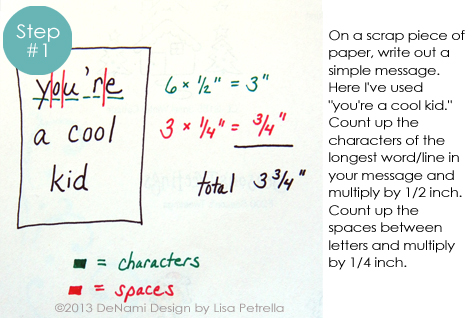 Step
#1
you're
a cool
kid
6 × 1/2" = 3"
3 × 1/4" = 3/4"
total 3 3/4"
= characters
= spaces
©2013 DeNami Design by Lisa Petrella
On a scrap piece of
paper, write out a
simple message.
Here I've used
"you're a cool kid."
Count up the
characters of the
longest word/line in
your message and
multiply by 1/2 inch.
Count up the
spaces between
letters and multiply
by 1/4 inch.